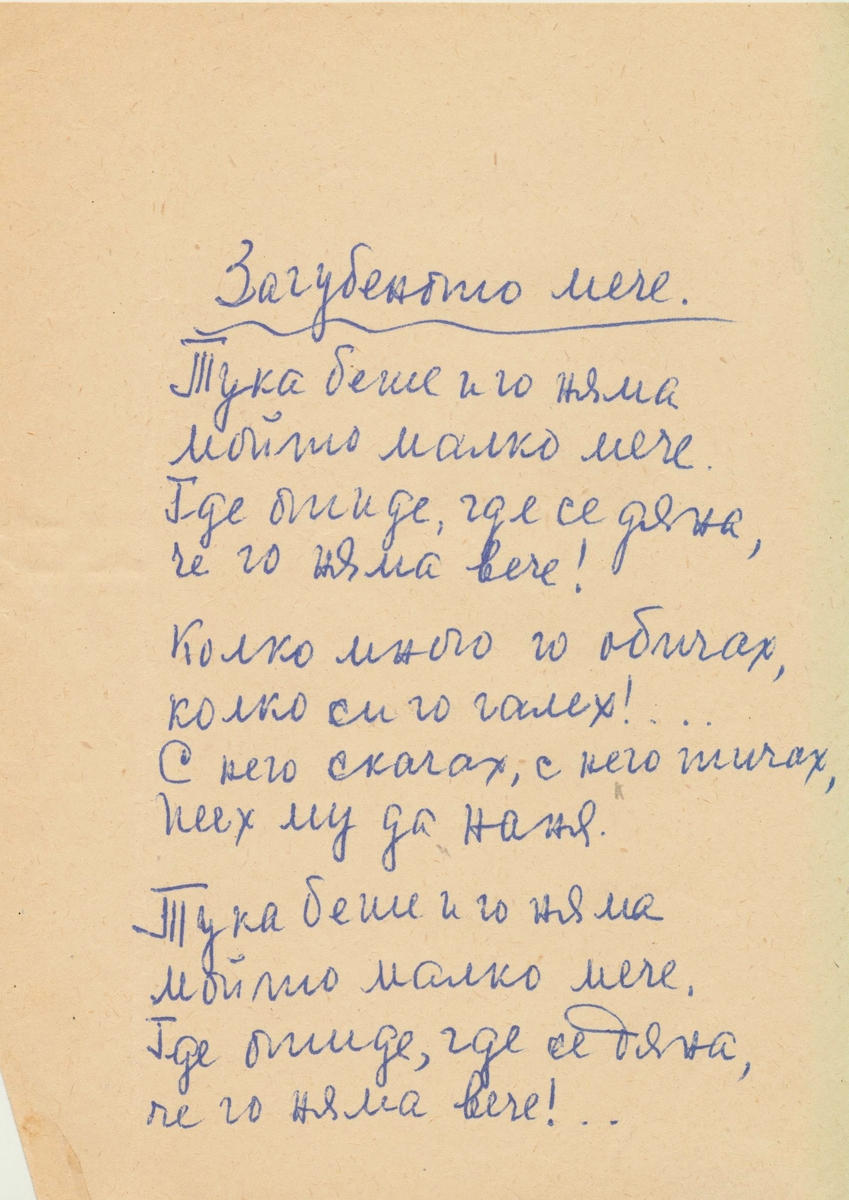 Загубеното мече.
Тука беше и го няма
мойто малко мече.
Где отиде, где се дяна,
че го няма вече!
Колко много го обичах,
колко си го галех!....
С него скачах, с него тичах,
пеех му да наня.
Тука беше и го няма
мойто малко мече.
Где отиде, где се дяна,
че го няма вече!..